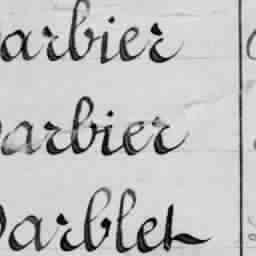 arbier
arbier
arblet